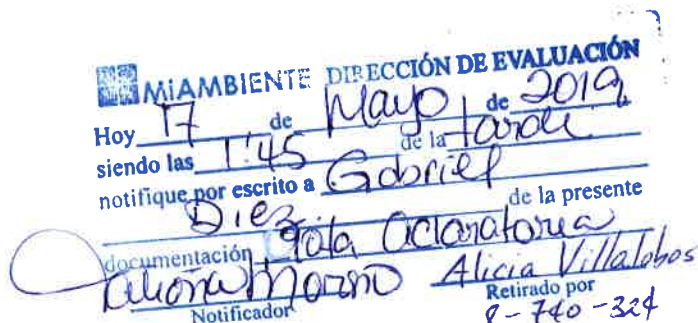 MiAMBIENTE DIRECCIÓN DE EVALUACIÓN
Hoy 17 de Mayo de 2019
siendo las 1:45 de la tarde
notifique por escrito a Gabriel
Diez de la presente
documentación Nota Aclaratoria
Moreno Alicia Villalobos
Notificador Retirado por
8-740-324